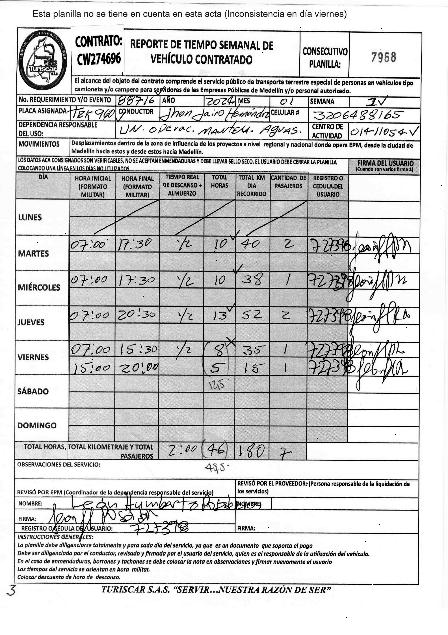 Esta planilla no se tiene en cuenta en esta acta (Inconsistencia en día viernes)
CONTRATO: CW274696
REPORTE DE TIEMPO SEMANAL DE VEHÍCULO CONTRATADO
CONSECUTIVO PLANILLA: 7968
El alcance del objeto del contrato comprende el servicio público de transporte terrestre especial de personas en vehículos tipo
camioneta y/o campero para servidores de las Empresas Públicas de Medellín y/o personal autorizado.
No. REQUERIMIENTO Y/O EVENTO 88716 AÑO 2024 MES 01 SEMANA IV
PLACA ASIGNADA CONDUCTOR Jhon Jairo Hernández CELULAR # 3206488165
DEPENDENCIA RESPONSABLE DEL USO: UN. Operac. Manten. Aguas. CENTRO DE ACTIVIDAD
MOVIMIENTOS Desplazamientos dentro de la zona de influencia de los proyectos a nivel regional y nacional donde opera EPM, desde la ciudad de
Medellín hacia estos y desde estos hacia Medellín.
LOS DATOS ACA CONSIGNADOS SON VERIFICABLES, NO SE ACEPTAN ENMENDADURAS
COLOCANDO UNA LÍNEA EN LOS DÍAS NO UTILIZADOS
FIRMA DEL USUARIO
(Cuando son varios firmas)
DÍA HORA INICIAL (FORMATO MILITAR) HORA FINAL (FORMATO MILITAR) TIEMPO REAL DE DESCANSO + ALMUERZO TOTAL HORAS TOTAL KM DIA RECORRIDO CANTIDAD DE PASAJEROS REGISTRO O CEDULA DEL USUARIO
LUNES
MARTES 07:00 17:30 1/2 10 40 2 727398
MIÉRCOLES 07:00 17:30 1/2 10 38 1 727398
JUEVES 07:00 20:30 1/2 13 52 2 727398
VIERNES 07:00 15:30 1/2 8 35 1 727398
15:00 20:00 5 15 1 727398
SÁBADO 12,5
DOMINGO
TOTAL HORAS, TOTAL KILOMETRAJE Y TOTAL PASAJEROS 2:00 (46) 180 7
OBSERVACIONES DEL SERVICIO: 45,5
REVISÓ POR EPM (Coordinador de la dependencia responsable del servicio)
REVISÓ POR EL PROVEEDOR: (Persona responsable de la liquidación de los servicios)
NOMBRE: León Humberto
FIRMA:
REGISTRO O CÉDULA DE USUARIO: 727398 FIRMA:
INSTRUCCIONES GENERALES:
La planilla debe diligenciarse totalmente y para cada día del servicio, ya que es un documento que soporta el pago
Debe ser diligenciada por el conductor, revisada y firmada por el usuario del servicio, quien es el responsable de la utilización del vehículo.
En el caso de enmendaduras, borrones y tachones se debe colocar la nota en observaciones y firmar nuevamente el usuario
Los tiempos del servicio se orientan en hora militar.
Colocar descuento de hora de descanso.
3
TURISCAR S.A.S. "SERVIR...NUESTRA RAZÓN DE SER"